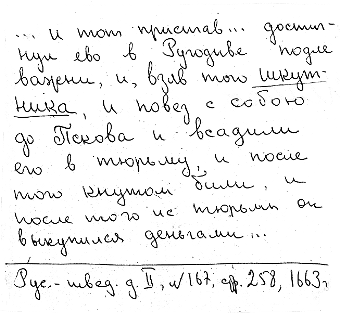 ... и тот пристав... достиг-
нул ево в Ругодиве подле
важни, и, взяв того шкут-
ника, и повез с собою
до Пскова и всадили
его в тюрьму, и после
того кнутом били, и
после того ис тюрьмы он
выкупился деньгами...
Рус.-швед. д. II, № 167, стр. 258, 1663 г.